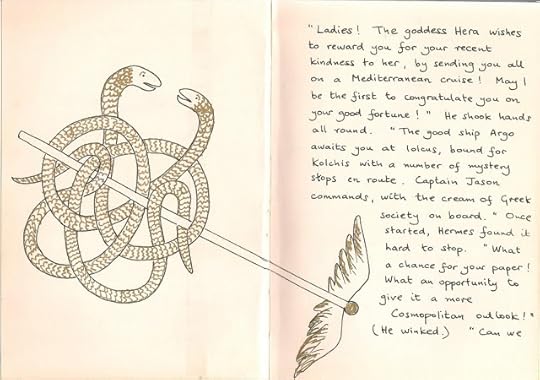 "Ladies! The goddess Hera wishes
to reward you for your recent
kindness to her, by sending you all
on a Mediterranean cruise! May I
be the first to congratulate you on
your good fortune!" He shook hands
all round. "The good ship Argo
awaits you at Iolcus, bound for
Kolchis with a number of mystery
stops en route. Captain Jason
commands, with the cream of Greek
society on board." Once
started, Hermes found it
hard to stop. "What
a chance for your paper!
What an opportunity to
give it a more
Cosmopolitan outlook!"
(He winked.) "Can we